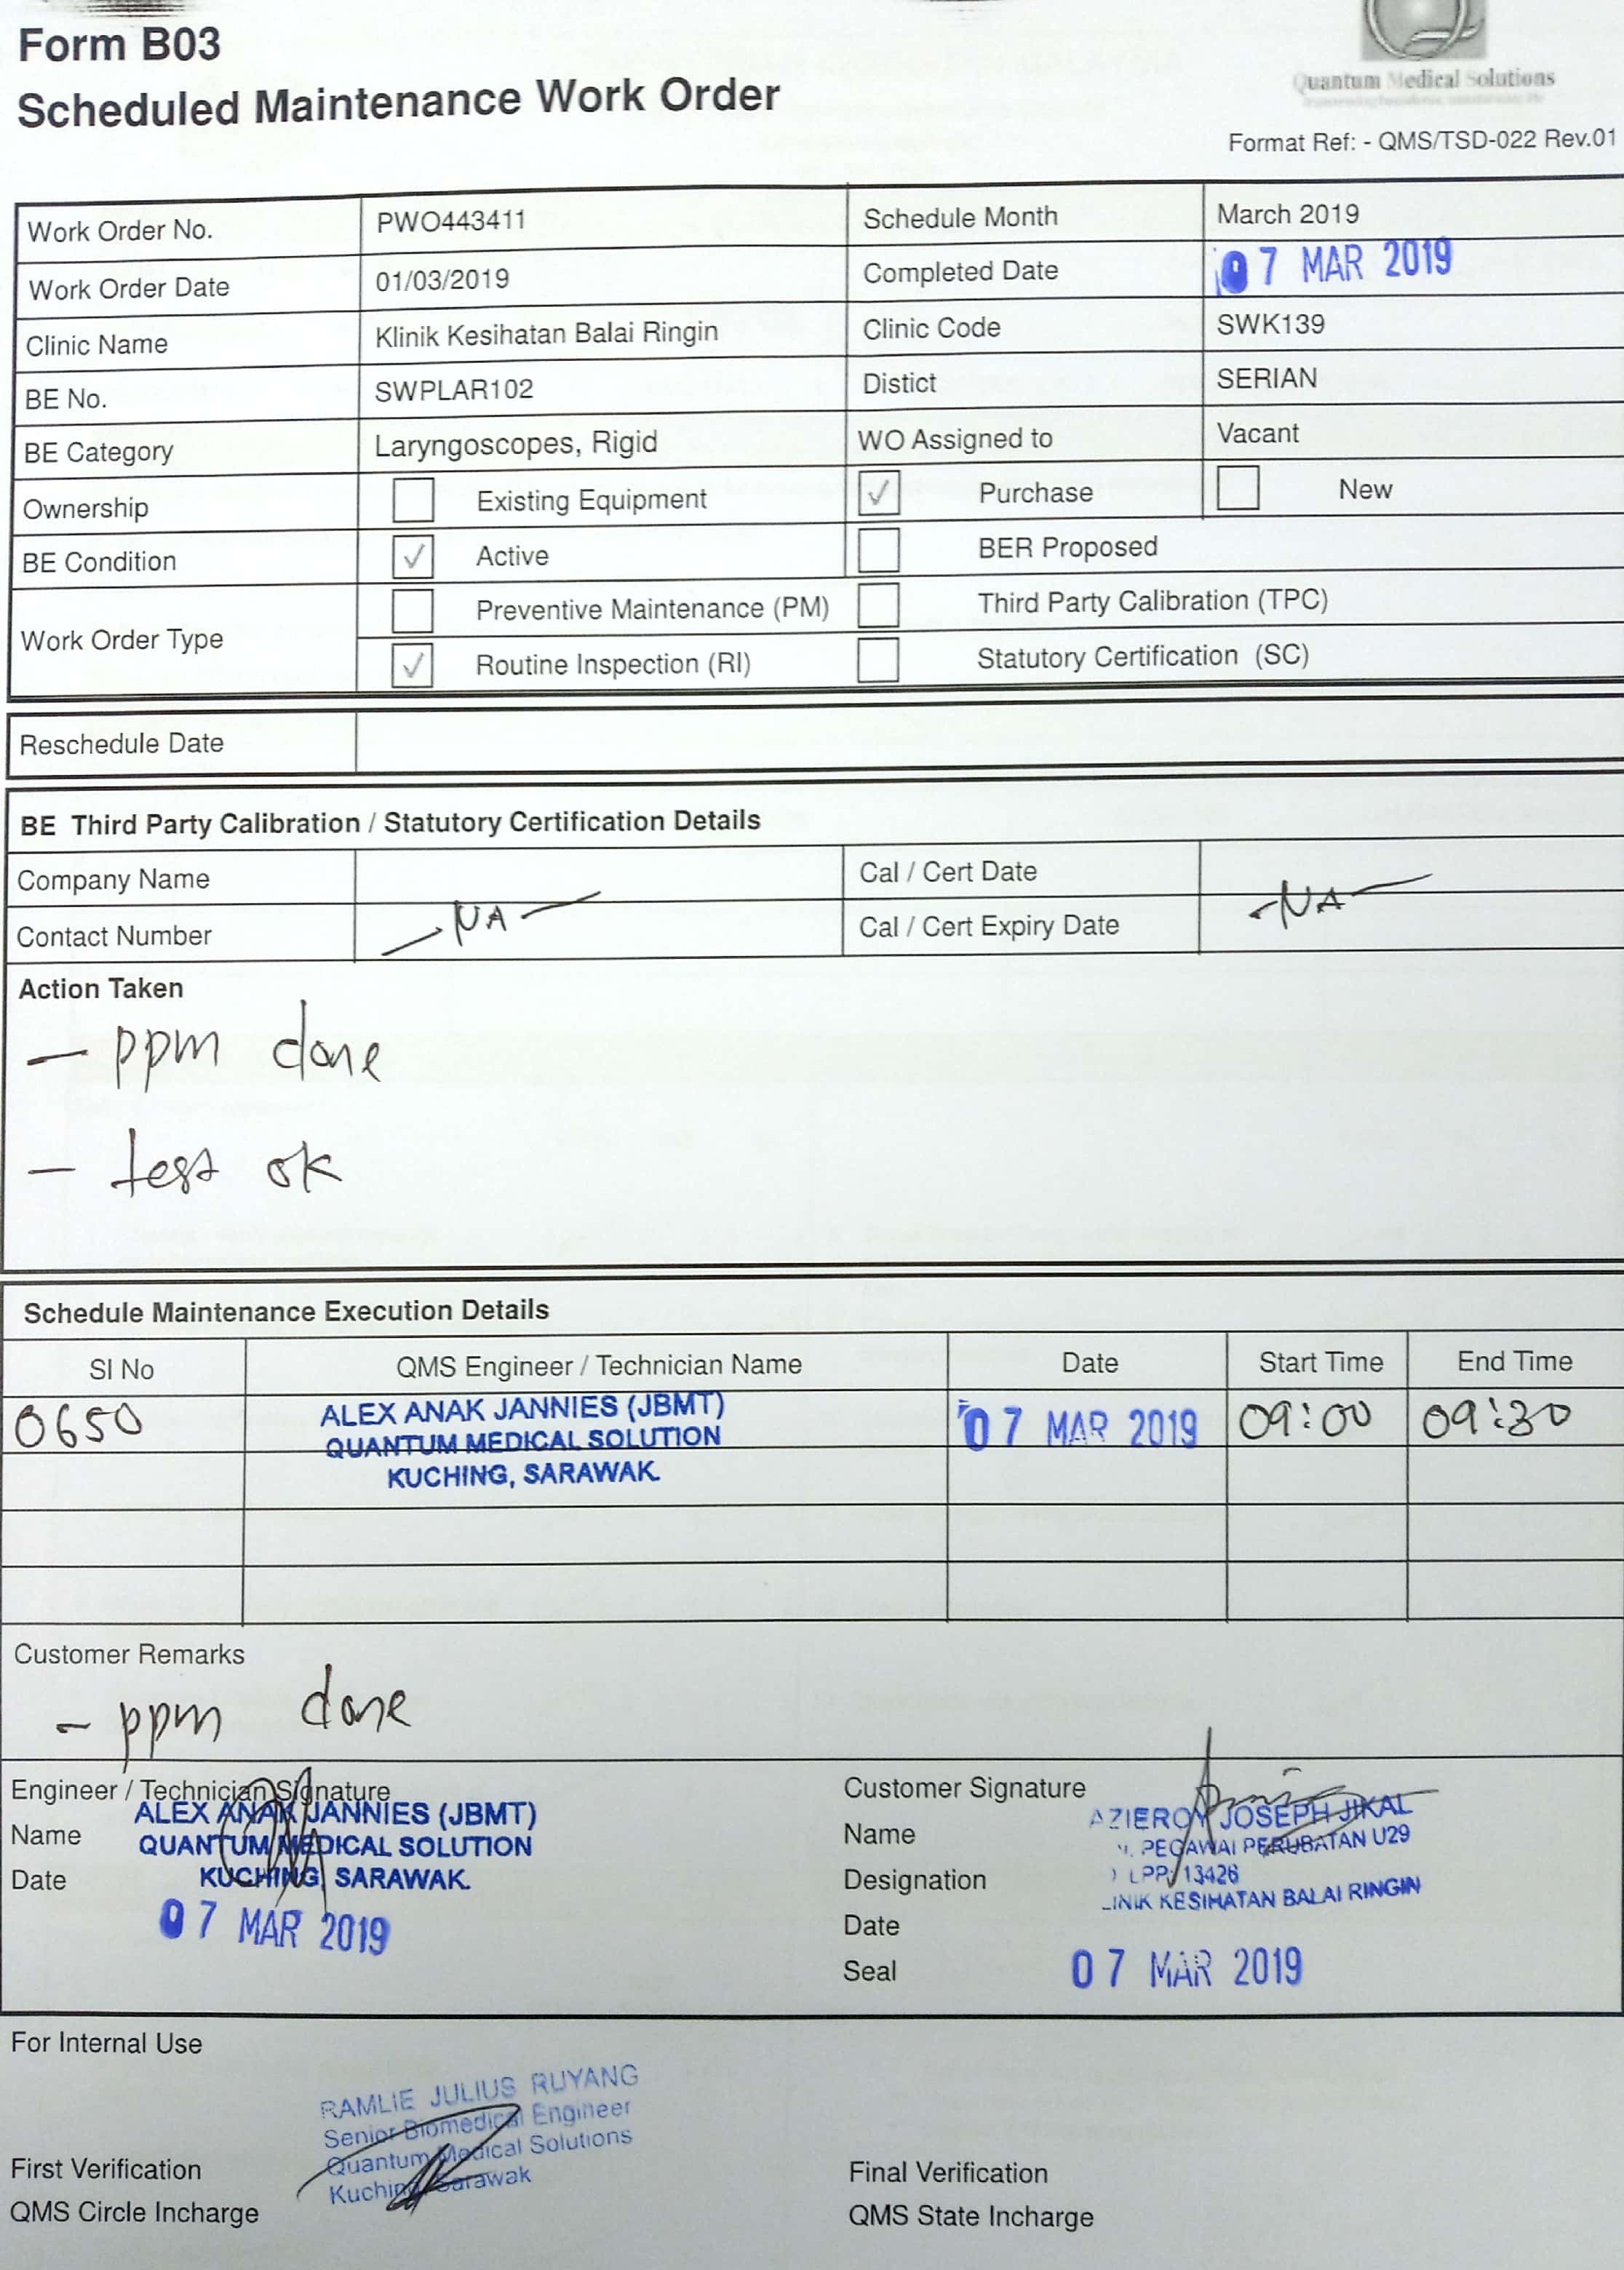 Form B03
Scheduled Maintenance Work Order
Quantum Medical Solutions
Format Ref: - QMS/TSD-022 Rev.01
Work Order No. PWO443411 Schedule Month March 2019
Work Order Date 01/03/2019 Completed Date 07 MAR 2019
Clinic Name Klinik Kesihatan Balai Ringin Clinic Code SWK139
BE No. SWPLAR102 Distict SERIAN
BE Category Laryngoscopes, Rigid WO Assigned to Vacant
Ownership Existing Equipment ✓ Purchase New
BE Condition ✓ Active BER Proposed
Work Order Type
Preventive Maintenance (PM) Third Party Calibration (TPC)
✓ Routine Inspection (RI) Statutory Certification (SC)
Reschedule Date
BE Third Party Calibration / Statutory Certification Details
Company Name Cal / Cert Date
Contact Number Cal / Cert Expiry Date
- NA - - NA -
Action Taken
- ppm done
- test ok
Schedule Maintenance Execution Details
SI No QMS Engineer / Technician Name Date Start Time End Time
0650 ALEX ANAK JANNIES (JBMT) 07 MAR 2019 09:00 09:30
QUANTUM MEDICAL SOLUTION
KUCHING, SARAWAK.
Customer Remarks
- ppm done
Engineer / Technician Signature
ALEX ANAK JANNIES (JBMT)
Name QUANTUM MEDICAL SOLUTION
Date KUCHING, SARAWAK.
07 MAR 2019
Customer Signature
AZIEROY JOSEPH JIKAL
Name PEGAWAI PERUBATAN U29
Designation LPP: 13426
LINIK KESIHATAN BALAI RINGIN
Date
Seal 07 MAR 2019
For Internal Use
RAMLIE JULIUS RUYANG
Senior Biomedical Engineer
Quantum Medical Solutions
Kuching Sarawak
First Verification
QMS Circle Incharge
Final Verification
QMS State Incharge